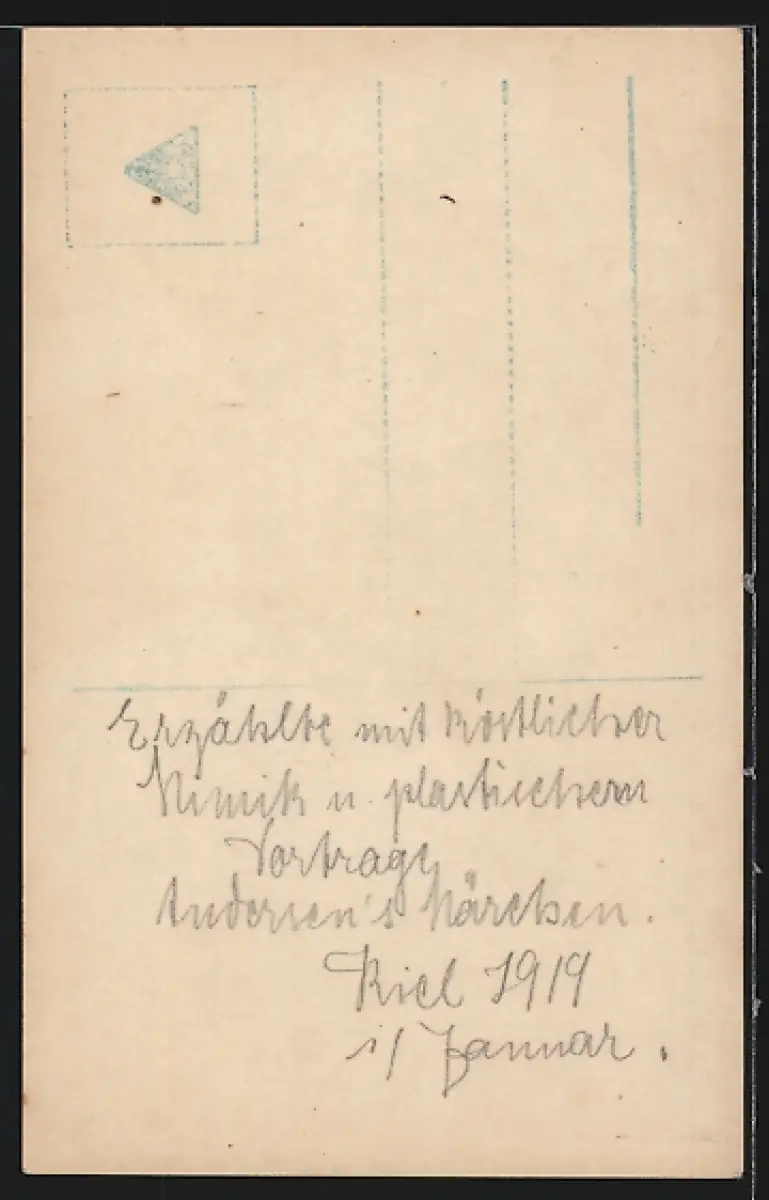 Erzählte mit köstlicher
Mimik u. plastischem
Vortrage
Andersen's Märchen.
Kiel 1919
i/ Januar.